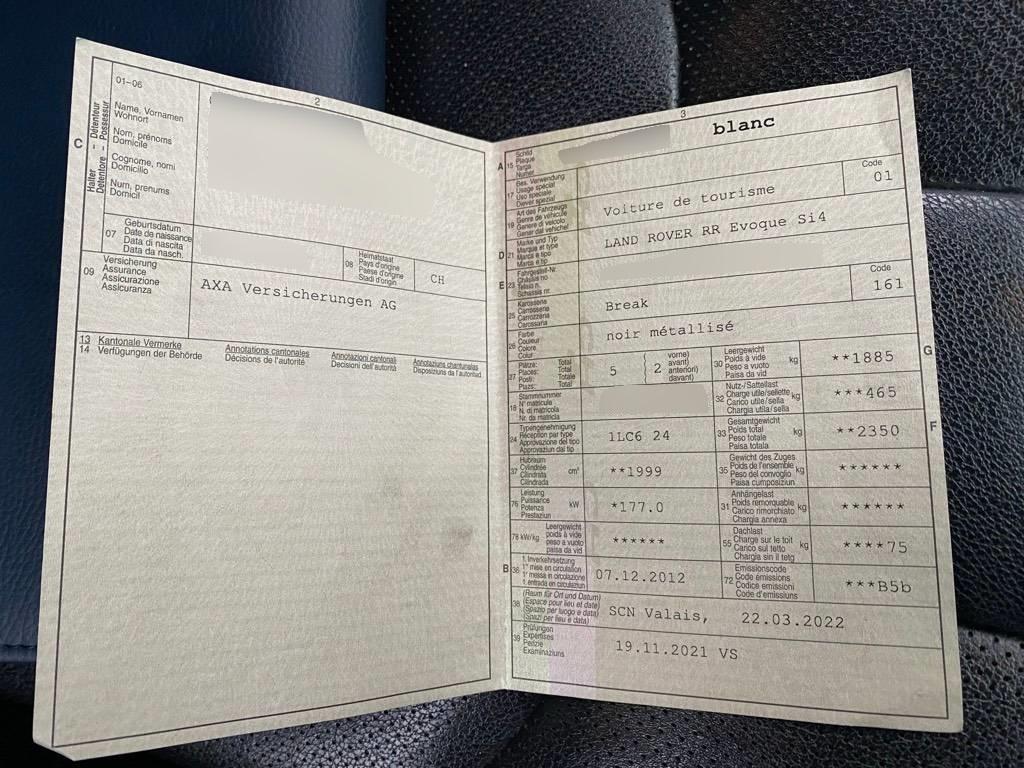 2
01–06
C
Halter – Détenteur
Detentore – Possessur
Name, Vornamen
Wohnort
Nom, prénoms
Domicile
Cognome, nomi
Domicilio
Num, prenums
Domicil
07
Geburtsdatum
Date de naissance
Data di nascita
Data da nasch.
08
Heimatstaat
Pays d'origine
Paese d'origine
Stadi d'origin
CH
09
Versicherung
Assurance
Assicurazione
Assicuranza
AXA Versicherungen AG
13 Kantonale Vermerke
14 Verfügungen der Behörde
Annotations cantonales
Décisions de l'autorité
Annotazioni cantonali
Decisioni dell'autorità
Annotaziuns chantunalas
Disposiziuns da l'autoritad
3
A
15
Schild
Plaque
Targa
Numer
blanc
17
Bes. Verwendung
Usage spécial
Uso speciale
Diever spezial
19
Art des Fahrzeugs
Genre de véhicule
Genere di veicolo
Gener dal vehichel
Voiture de tourisme
Code
01
D
21
Marke und Typ
Marque et type
Marca e tipo
Marca e tip
LAND ROVER RR Evoque Si4
E
23
Fahrgestell-Nr.
Châssis no
Telaio n.
Schassis nr.
25
Karosserie
Carrosserie
Carrozzeria
Carossaria
Break
Code
161
26
Farbe
Couleur
Colore
Colur
noir métallisé
27
Plätze: Total
Places: Total
Posti: Totale
Plazs: Total
5
2
vorne)
avant)
anteriori)
davant)
G
30
Leergewicht
Poids à vide
Peso a vuoto
Paisa da vid
kg
**1885
18
Stammnummer
N° matricule
N. di matricola
Nr. da matricla
32
Nutz-/Sattellast
Charge utile/sellette
Carico utile/sella
Chargia utila/sella
kg
***465
24
Typengenehmigung
Réception par type
Approvazione del tipo
Approvaziun dal tip
1LC6 24
F
33
Gesamtgewicht
Poids total
Peso totale
Paisa totala
kg
**2350
37
Hubraum
Cylindrée
Cilindrata
Cilindrada
cm³
**1999
35
Gewicht des Zuges
Poids de l'ensemble
Peso del convoglio
Paisa cumposiziun
kg
******
76
Leistung
Puissance
Potenza
Prestaziun
kW
*177.0
31
Anhängelast
Poids remorquable
Carico rimorchiato
Chargia annexa
kg
******
78 kW/kg
Leergewicht
poids à vide
peso a vuoto
paisa da vid
******
55
Dachlast
Charge sur le toit
Carico sul tetto
Chargia sin il tetg
kg
****75
B
36
1. Inverkehrsetzung
1re mise en circulation
1a messa in circolazione
1. entrada en circulaziun
07.12.2012
72
Emissionscode
Code émissions
Codice emissioni
Code d'emissiuns
***B5b
38
(Raum für Ort und Datum)
(Espace pour lieu et date)
(Spazio per luogo e data)
(Spazi per lieu e data)
SCN Valais, 22.03.2022
39
Prüfungen
Expertises
Perizie
Examinaziuns
19.11.2021 VS